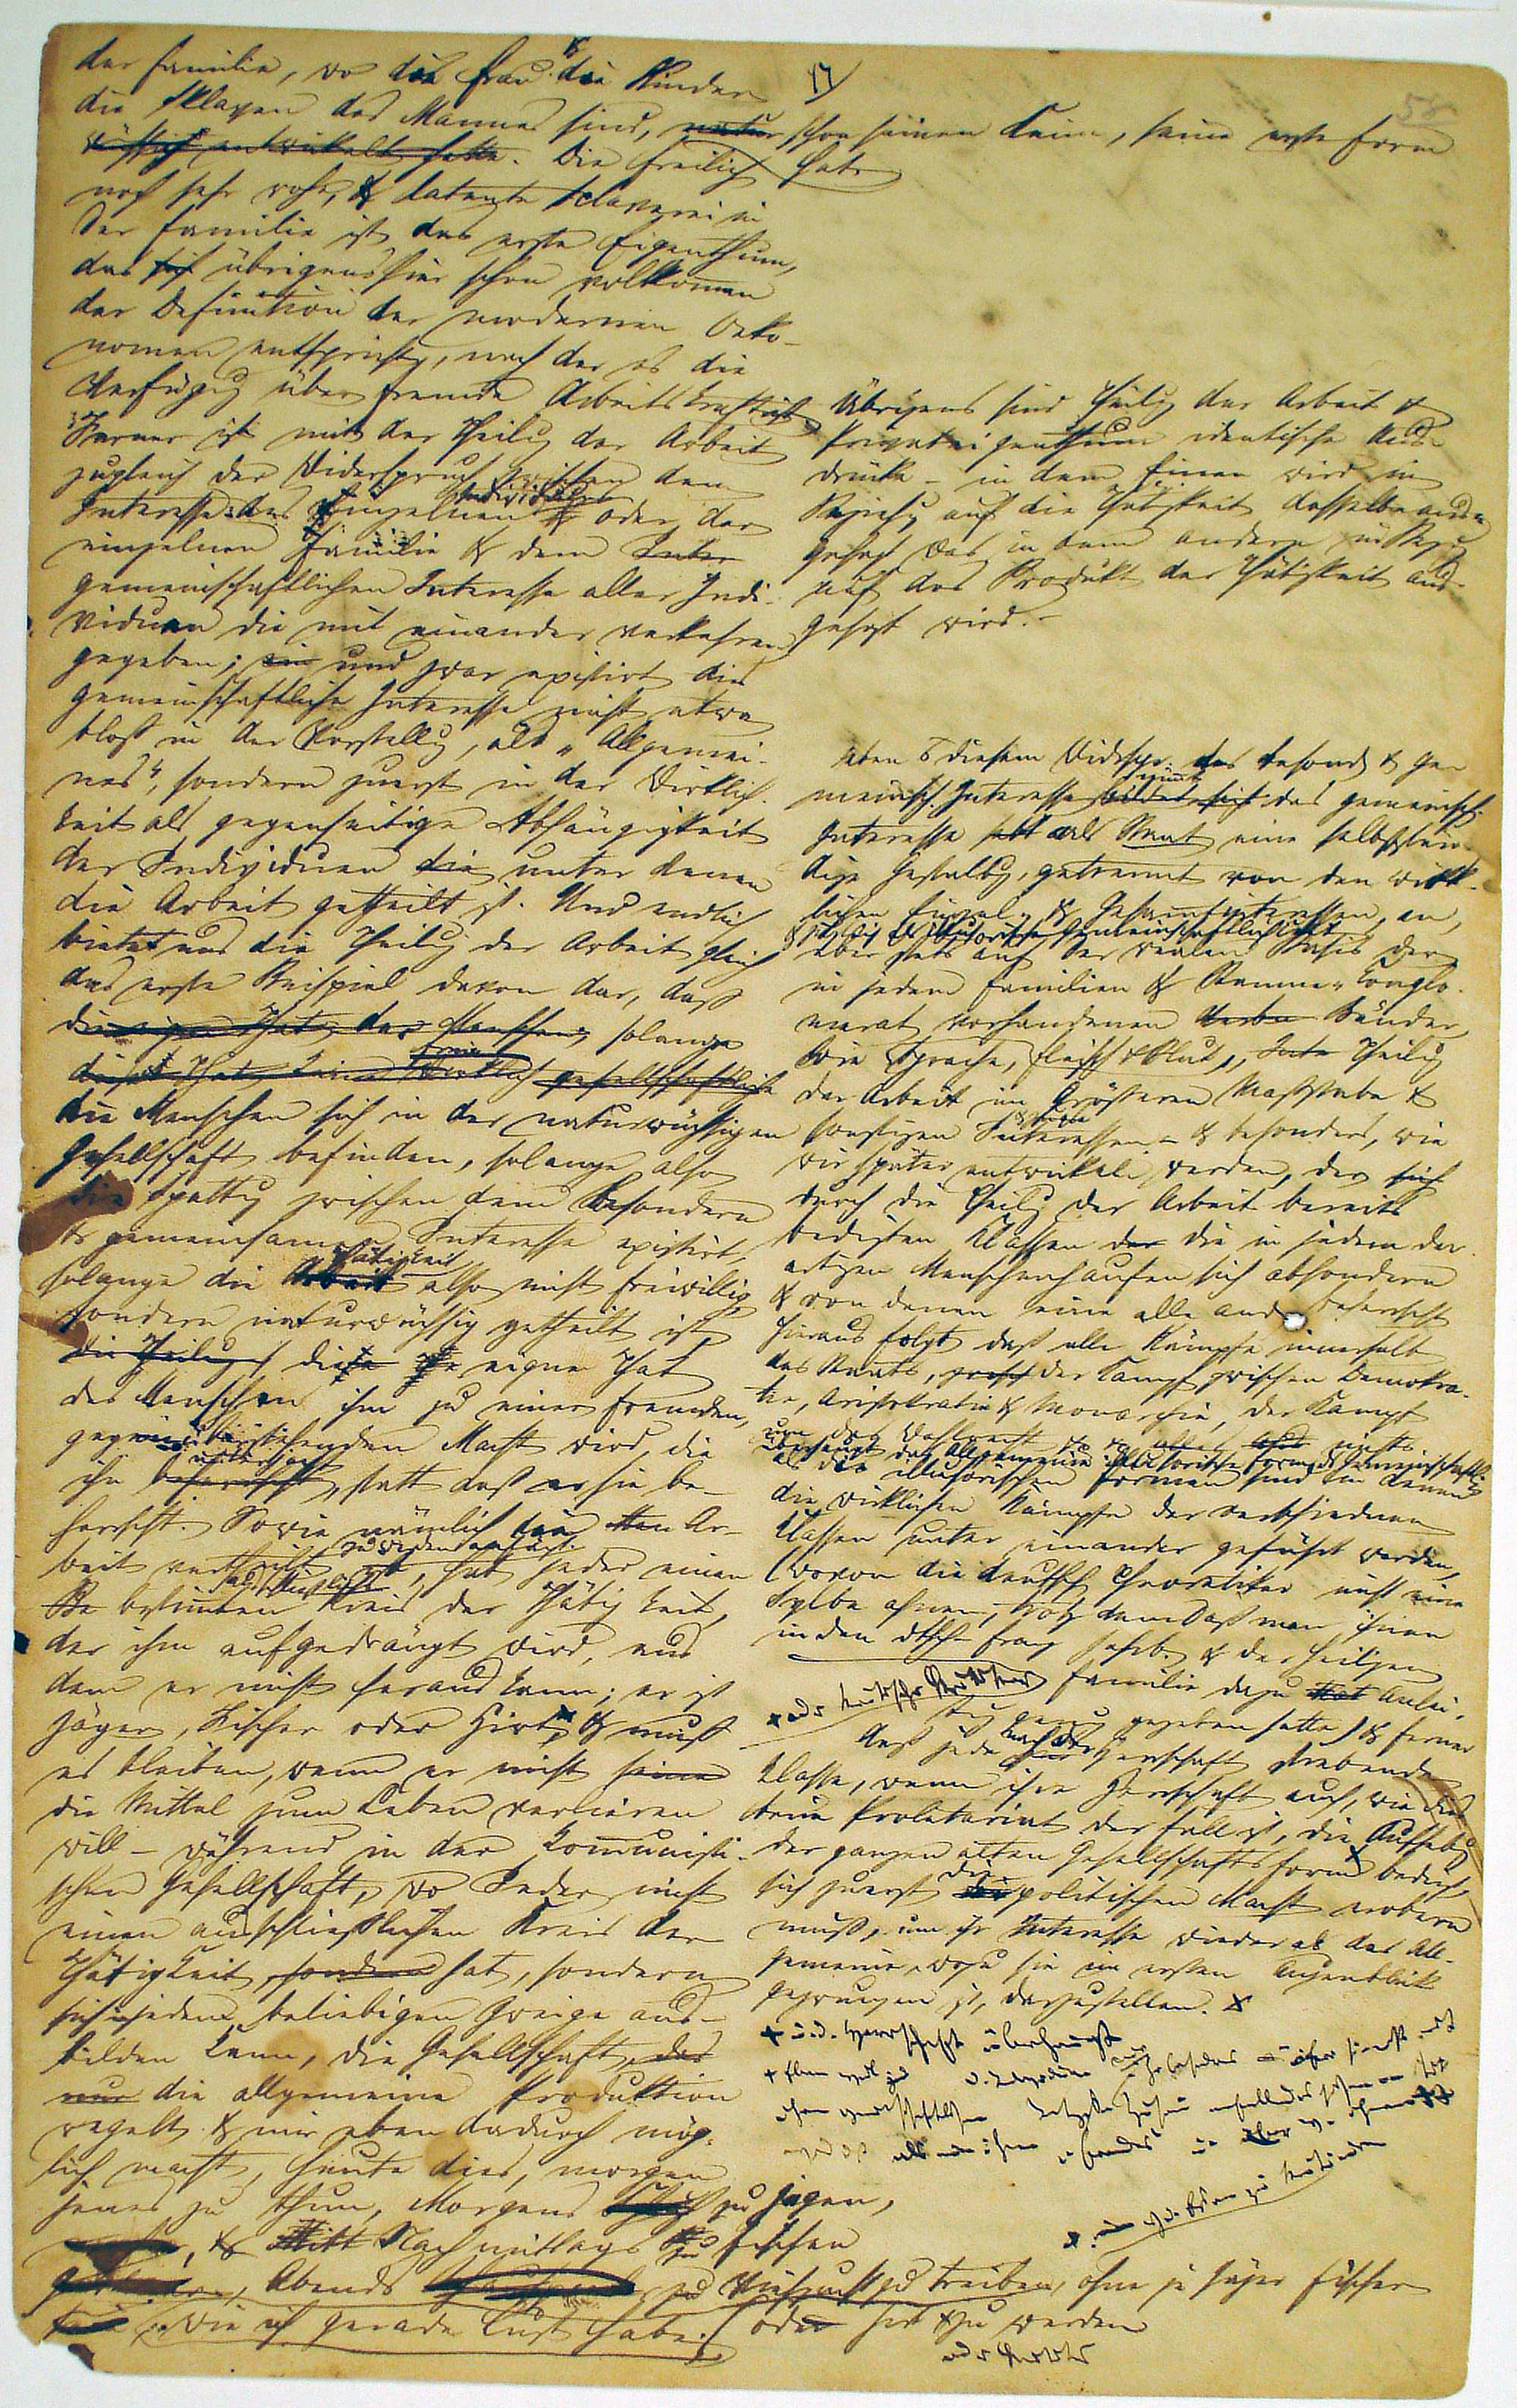 17)
58
der Familie, wo die Frau & die Kinder
die Sklaven des Mannes sind, natur schon seinen Keim, seine erste Form
wüchsig entwickelt hatte. Die freilich hat.
noch sehr rohe, & latente Sklaverei in
der Familie ist das erste Eigenthum,
das sich übrigens hier schon vollkommen
der Definition der modernen Oeko-
nomen entspricht, nach der es die
Verfügung über fremde Arbeitskraft ist.
Ferner ist mit der Theilung der Arbeit
zugleich der Widerspruch zwischen dem
Interesse des einzelnen Individuums oder der
einzelnen Familie & dem Inter
gemeinschaftlichen Interesse aller Indi-
viduen die mit einander verkehren,
gegeben; ein und zwar existirt dies
gemeinschaftliche Interesse nicht etwa
bloß in der Vorstellung, als „Allgemei-
nes“, sondern zuerst in der Wirklich-
keit als gegenseitige Abhängigkeit
der Individuen die unter denen
die Arbeit getheilt ist. Und endlich
bietet uns die Theilung der Arbeit gleich
das erste Beispiel davon dar, daß
die eigne That des Menschen, solange
diese That keine freie wirklich gesellschaftliche
die Menschen sich in der naturwüchsigen
Gesellschaft befinden, solange also
die Spaltung zwischen dem besondern
& gemeinsamen Interesse existirt,
solange die Arbeit Thätigkeit also nicht freiwillig,
sondern naturwüchsig getheilt ist,
die Theilung die eigne That
des Menschen ihm zu einer fremden,
gegenüberstehenden Macht wird, die
ihn beherrscht unterjocht, statt daß er sie be-
herrscht. Sowie nämlich die Ar-
beit vertheilt zu werden anfängt, hat Jeder einen
bestimmten ausschließlichen Kreis der Thätigkeit,
der ihm aufgedrängt wird, aus
dem er nicht heraus kann; er ist
Jäger, Fischer oder Hirt & muß
es bleiben, wenn er nicht seine
die Mittel zum Leben verlieren
will – während in der kommunisti-
schen Gesellschaft, wo Jeder nicht
einen ausschließlichen Kreis der
Thätigkeit, sondern hat, sondern
sich in jedem beliebigen Zweige aus-
bilden kann, die Gesellschaft, das
nur die allgemeine Produktion
regelt & mir eben dadurch mög-
lich macht, heute dies, morgen
jenes zu thun, Morgens zu jagen,
& Mitt Nachmittags zu fischen
Abends zu Viehzucht zu treiben, ohne je Jäger Fischer
wie ich gerade Lust habe. oder Hirt zu werden
oder Kritiker
Übrigens sind Theilung der Arbeit &
Privateigenthum identische Aus-
drücke – in dem Einen wird in
Beziehung auf die Thätigkeit dasselbe aus-
gesagt was in dem andern in Bezug
auf das Produkt der Thätigkeit aus-
gesagt wird. –
Eben aus diesem Widerspr. des besond & ge-
meinsch. Interesse nimmt bildet sich das gemeinsch.
Interesse als Staat eine selbststän-
dige Gestaltung, getrennt von den wirk-
lichen Einzel- & Gesammtinteressen, an,
& zugleich als illusorische Gemeinschaftlichkeit
aber stets auf der realen Basis der
in jedem Familien & Stamm-Conglo-
merat vorhandenen Bänder,
wie Sprache, Fleisch & Blut, Theilung
der Arbeit im größeren Maßstabe &
sonstigen Interessen – & besonders, wie
wir später entwickeln werden, der
durch die Theilung der Arbeit bereits
bedingten Klassen der die in jedem der-
artigen Menschenhaufen sich absondern
& von denen eine alle andern beherrscht
Hieraus folgt daß alle Kämpfe innerhalb
des Staats, der Kampf zwischen Demokra-
tie, Aristokratie & Monarchie, der Kampf
um das Wahlrecht &c &c nichts
überhaupt das Allgemeine illusorische Form der Gemeinschaftlichkeit
als die illusorischen Formen sind in denen
die wirklichen Kämpfe der verschiednen
Klassen unter einander geführt werden,
(wovon die deutschen Theoretiker nicht eine
Sylbe ahnen, trotz dem daß man ihnen
in den dtsch-franz Jahrb. & der heiligen
x oder kritischer Kritiker Familie dazu Anlei-
tung genug gegeben hatte) & ferner
daß jede nach der Herrschaft strebende
Klasse, wenn ihre Herrschaft auch, wie dies
beim Proletariat der Fall ist, die Aufhebung
der ganzen alten Gesellschaftsform bedingt,
sich zuerst die politischen Macht erobern
muß, um ihr Interesse wieder als das All-
gemeine, wozu sie im ersten Augenblick
gezwungen ist, darzustellen. x
+ u. d. Herrschaft überhaupt
+ Eben weil